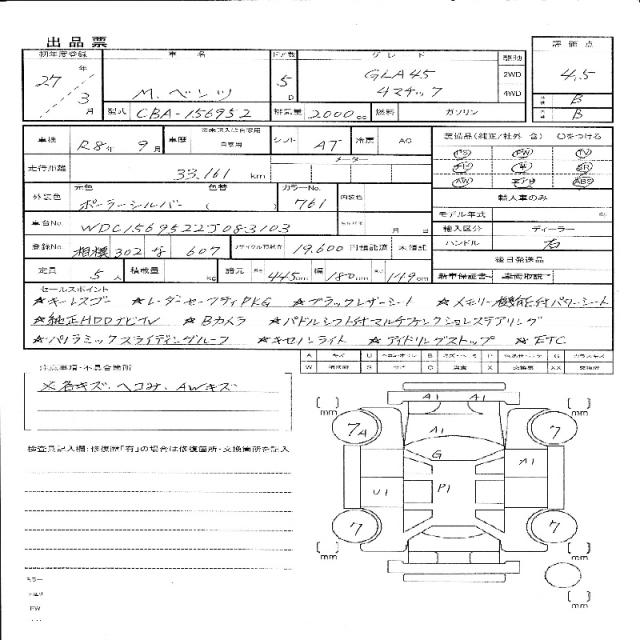 出品票
初年度登録 車名 ドア数 グレード 駆動 評価点
27年 3月 M.ベンツ 5D GLA45 4マチック 2WD 4WD 4.5
型式 CBA-156952 排気量 2000cc 燃料 ガソリン B B
車検 R8年 9月 車歴 自家用 シフト AT 冷房 AC 装備品(純正/社外 含) ○をつける
PS PW TV
走行距離 33,161 km メーター SR
AW エアB ABS
外装色 元色 ポーラーシルバー 色替 ( カラーNo. 761 内装色 輸入車のみ
モデル年式
車台No. WDC1569522J083103 月 日 輸入区分 ディーラー
登録No. 相模 302 な 607 リサイクル預託金 19,600 円預託済 未預託 ハンドル 右
後日発送品
定員 5人 積載量 kg 諸元 445cm 幅 180cm 149cm 新車保証書 取説
セールスポイント
★キーレスゴー ★レーダーセーフティPKG ★ブラックレザーシート ★メモリー機能付パワーシート
★純正HDDナビTV ★Bカメラ ★パドルシフト付マルチファンクションステアリング
★パノラミックスライディングルーフ ★キセノンライト ★アイドリングストップ ★ETC
A キズ U B P G ガラスキズ
W S C X XX
注意事項・不具合箇所
※各キズ、ヘコミ、AWキズ
検査員記入欄:修復歴「有」の場合は修復箇所・交換箇所を記入
[ ] mm [ ] mm
A1 A1
7A A1 7
G
A1
U1 P1
7 7
[ ] mm [ ] mm
[ ] mm